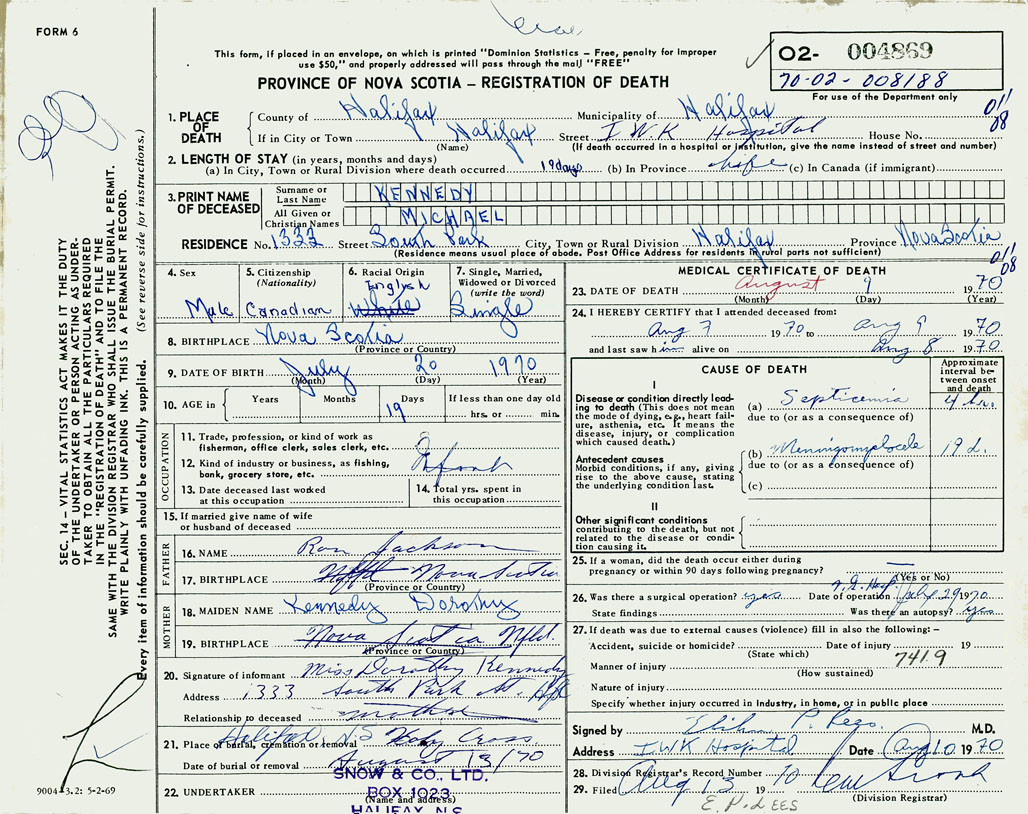 FORM 6
This form, if placed in an envelope, on which is printed "Dominion Statistics – Free, penalty for improper
use $50," and properly addressed will pass through the mail "FREE"
02- 004869
70-02-008188
For use of the Department only
PROVINCE OF NOVA SCOTIA – REGISTRATION OF DEATH
011
08
1. PLACE OF DEATH
County of Halifax Municipality of Halifax
If in City or Town Halifax Street I W K Hospital House No.
(Name) (If death occurred in a hospital or institution, give the name instead of street and number)
2. LENGTH OF STAY (in years, months and days)
(a) In City, Town or Rural Division where death occurred 19 days (b) In Province life (c) In Canada (if immigrant)
3. PRINT NAME OF DECEASED
Surname or Last Name KENNEDY
All Given or Christian Names MICHAEL
RESIDENCE No. 1333 Street South Park City, Town or Rural Division Halifax Province Nova Scotia
(Residence means usual place of abode. Post Office Address for residents in rural parts not sufficient)
011
08
4. Sex
Male
5. Citizenship
(Nationality)
Canadian
6. Racial Origin
English
White
7. Single, Married,
Widowed or Divorced
(write the word)
Single
8. BIRTHPLACE Nova Scotia
(Province or Country)
9. DATE OF BIRTH July 20 1970
(Month) (Day) (Year)
10. AGE in Years Months Days 19 If less than one day old
hrs. or min.
OCCUPATION
11. Trade, profession, or kind of work as
fisherman, office clerk, sales clerk, etc.
12. Kind of industry or business, as fishing,
bank, grocery store, etc.
13. Date deceased last worked
at this occupation
14. Total yrs. spent in
this occupation
15. If married give name of wife
or husband of deceased
FATHER
16. NAME Ron Jackson
17. BIRTHPLACE Nfld Nova Scotia
(Province or Country)
MOTHER
18. MAIDEN NAME Kennedy Dorothy
19. BIRTHPLACE Nova Scotia Nfld.
(Province or Country)
20. Signature of informant Miss Dorothy Kennedy
Address 1333 South Park St. Hfx
Relationship to deceased mother
21. Place of burial, cremation or removal Halifax, N.S Holy Cross
Date of burial or removal August 13/70
22. UNDERTAKER
(Name and address)
SNOW & CO., LTD.
BOX 1023
HALIFAX, N.S.
MEDICAL CERTIFICATE OF DEATH
23. DATE OF DEATH August 9 1970
(Month) (Day) (Year)
24. I HEREBY CERTIFY that I attended deceased from:
Aug 7 1970 to Aug 9 1970
and last saw him alive on Aug 8 1970
CAUSE OF DEATH
Approximate
interval be-
tween onset
and death
I
Disease or condition directly lead-
ing to death (This does not mean
the mode of dying, e.g., heart fail-
ure, asthenia, etc. It means the
disease, injury, or complication
which caused death.)
(a) Septicemia 4 hr.
due to (or as a consequence of)
Antecedent causes
Morbid conditions, if any, giving
rise to the above cause, stating
the underlying condition last.
(b) Meningomyelocele 19 d.
due to (or as a consequence of)
(c)
II
Other significant conditions
contributing to the death, but not
related to the disease or condi-
tion causing it.
25. If a woman, did the death occur either during
pregnancy or within 90 days following pregnancy?
(Yes or No)
26. Was there a surgical operation? yes Date of operation July 29 1970
State findings Was there an autopsy? yes
27. If death was due to external causes (violence) fill in also the following: –
Accident, suicide or homicide? Date of injury 19
(State which)
7419
Manner of injury
(How sustained)
Nature of injury
Specify whether injury occurred in Industry, in home, or in public place
Signed by P. Rees. M.D.
Address IWK Hospital Date Aug 10 1970
28. Division Registrar's Record Number
29. Filed Aug 13 19 70
(Division Registrar)
E. P. LEES
SEC. 14 – VITAL STATISTICS ACT MAKES IT THE DUTY
OF THE UNDERTAKER OR PERSON ACTING AS UNDER-
TAKER TO OBTAIN ALL THE PARTICULARS REQUIRED
IN THE "REGISTRATION OF DEATH" AND TO FILE THE
SAME WITH THE DIVISION REGISTRAR WHO SHALL ISSUE THE BURIAL PERMIT.
WRITE PLAINLY WITH UNFADING INK. THIS IS A PERMANENT RECORD.
Every item of information should be carefully supplied. (See reverse side for instructions.)
9004-3.2: 5-2-69